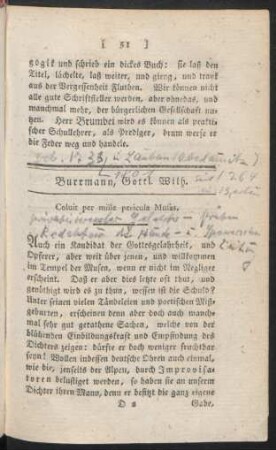 [ 51 ]
gogik und schrieb ein dickes Buch: sie laß den
Titel, lächelte, laß weiter, und gieng, und trank
aus der Vergessenheit Fluthen. Wir können nicht
alle gute Schriftsteller werden, aber ohnedas, und
manchmal mehr, der bürgerlichen Gesellschaft nu-
tzen. Herr Brumbei wird es können als prakti-
scher Schullehrer, als Prediger, drum werfe er
die Feder weg und handele.
Burrmann, Gottl. Wilh.
Coluit per mille pericula Musas.
Auch ein Kandidat der Gottesgelahrheit, und
Opferer, aber weit über jenen, und willkommen
im Tempel der Musen, wenn er nicht im Negligee
erscheint. Daß er aber dies letzte oft thut, ohne
nöthig zu haben, wessen ist die Schuld?
Unter seinen vielen Tändeleien und poetischen Miß-
gebarten, erscheinen denn aber doch auch manch-
mal sehr gut gerathene Sachen, welche von der
blühenden Einbildungskraft und Empfindung des
Dichters zeigen: dürfte er doch weniger fruchtbar
seyn! Wollen indessen deutsche Ohren auch einmal,
wie die, jenseits der Alpen, durch Improvisa-
toren belustiget werden, so haben sie an unserm
Dichter ihren Mann, denn er besitzt die ganz eigene
D 2 Gabe,